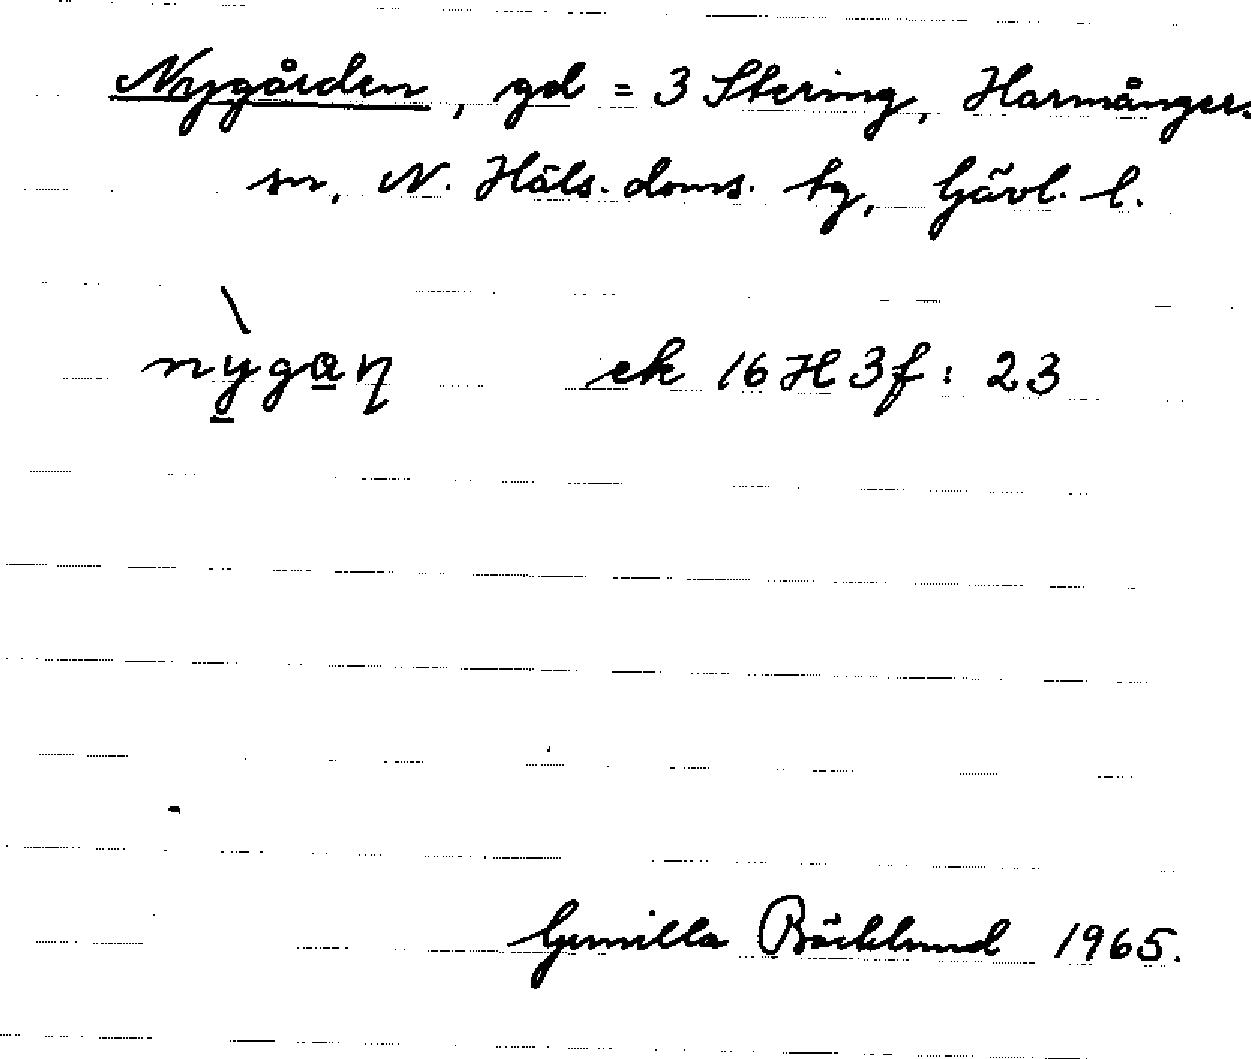 Nygården, gd = 3 Stering, Harmånger.
sn, N. Häls. doms. tg, Gävl. l.
nỳgan̥ ek 16 H 3f : 23
Gunilla Bäcklund 1965.